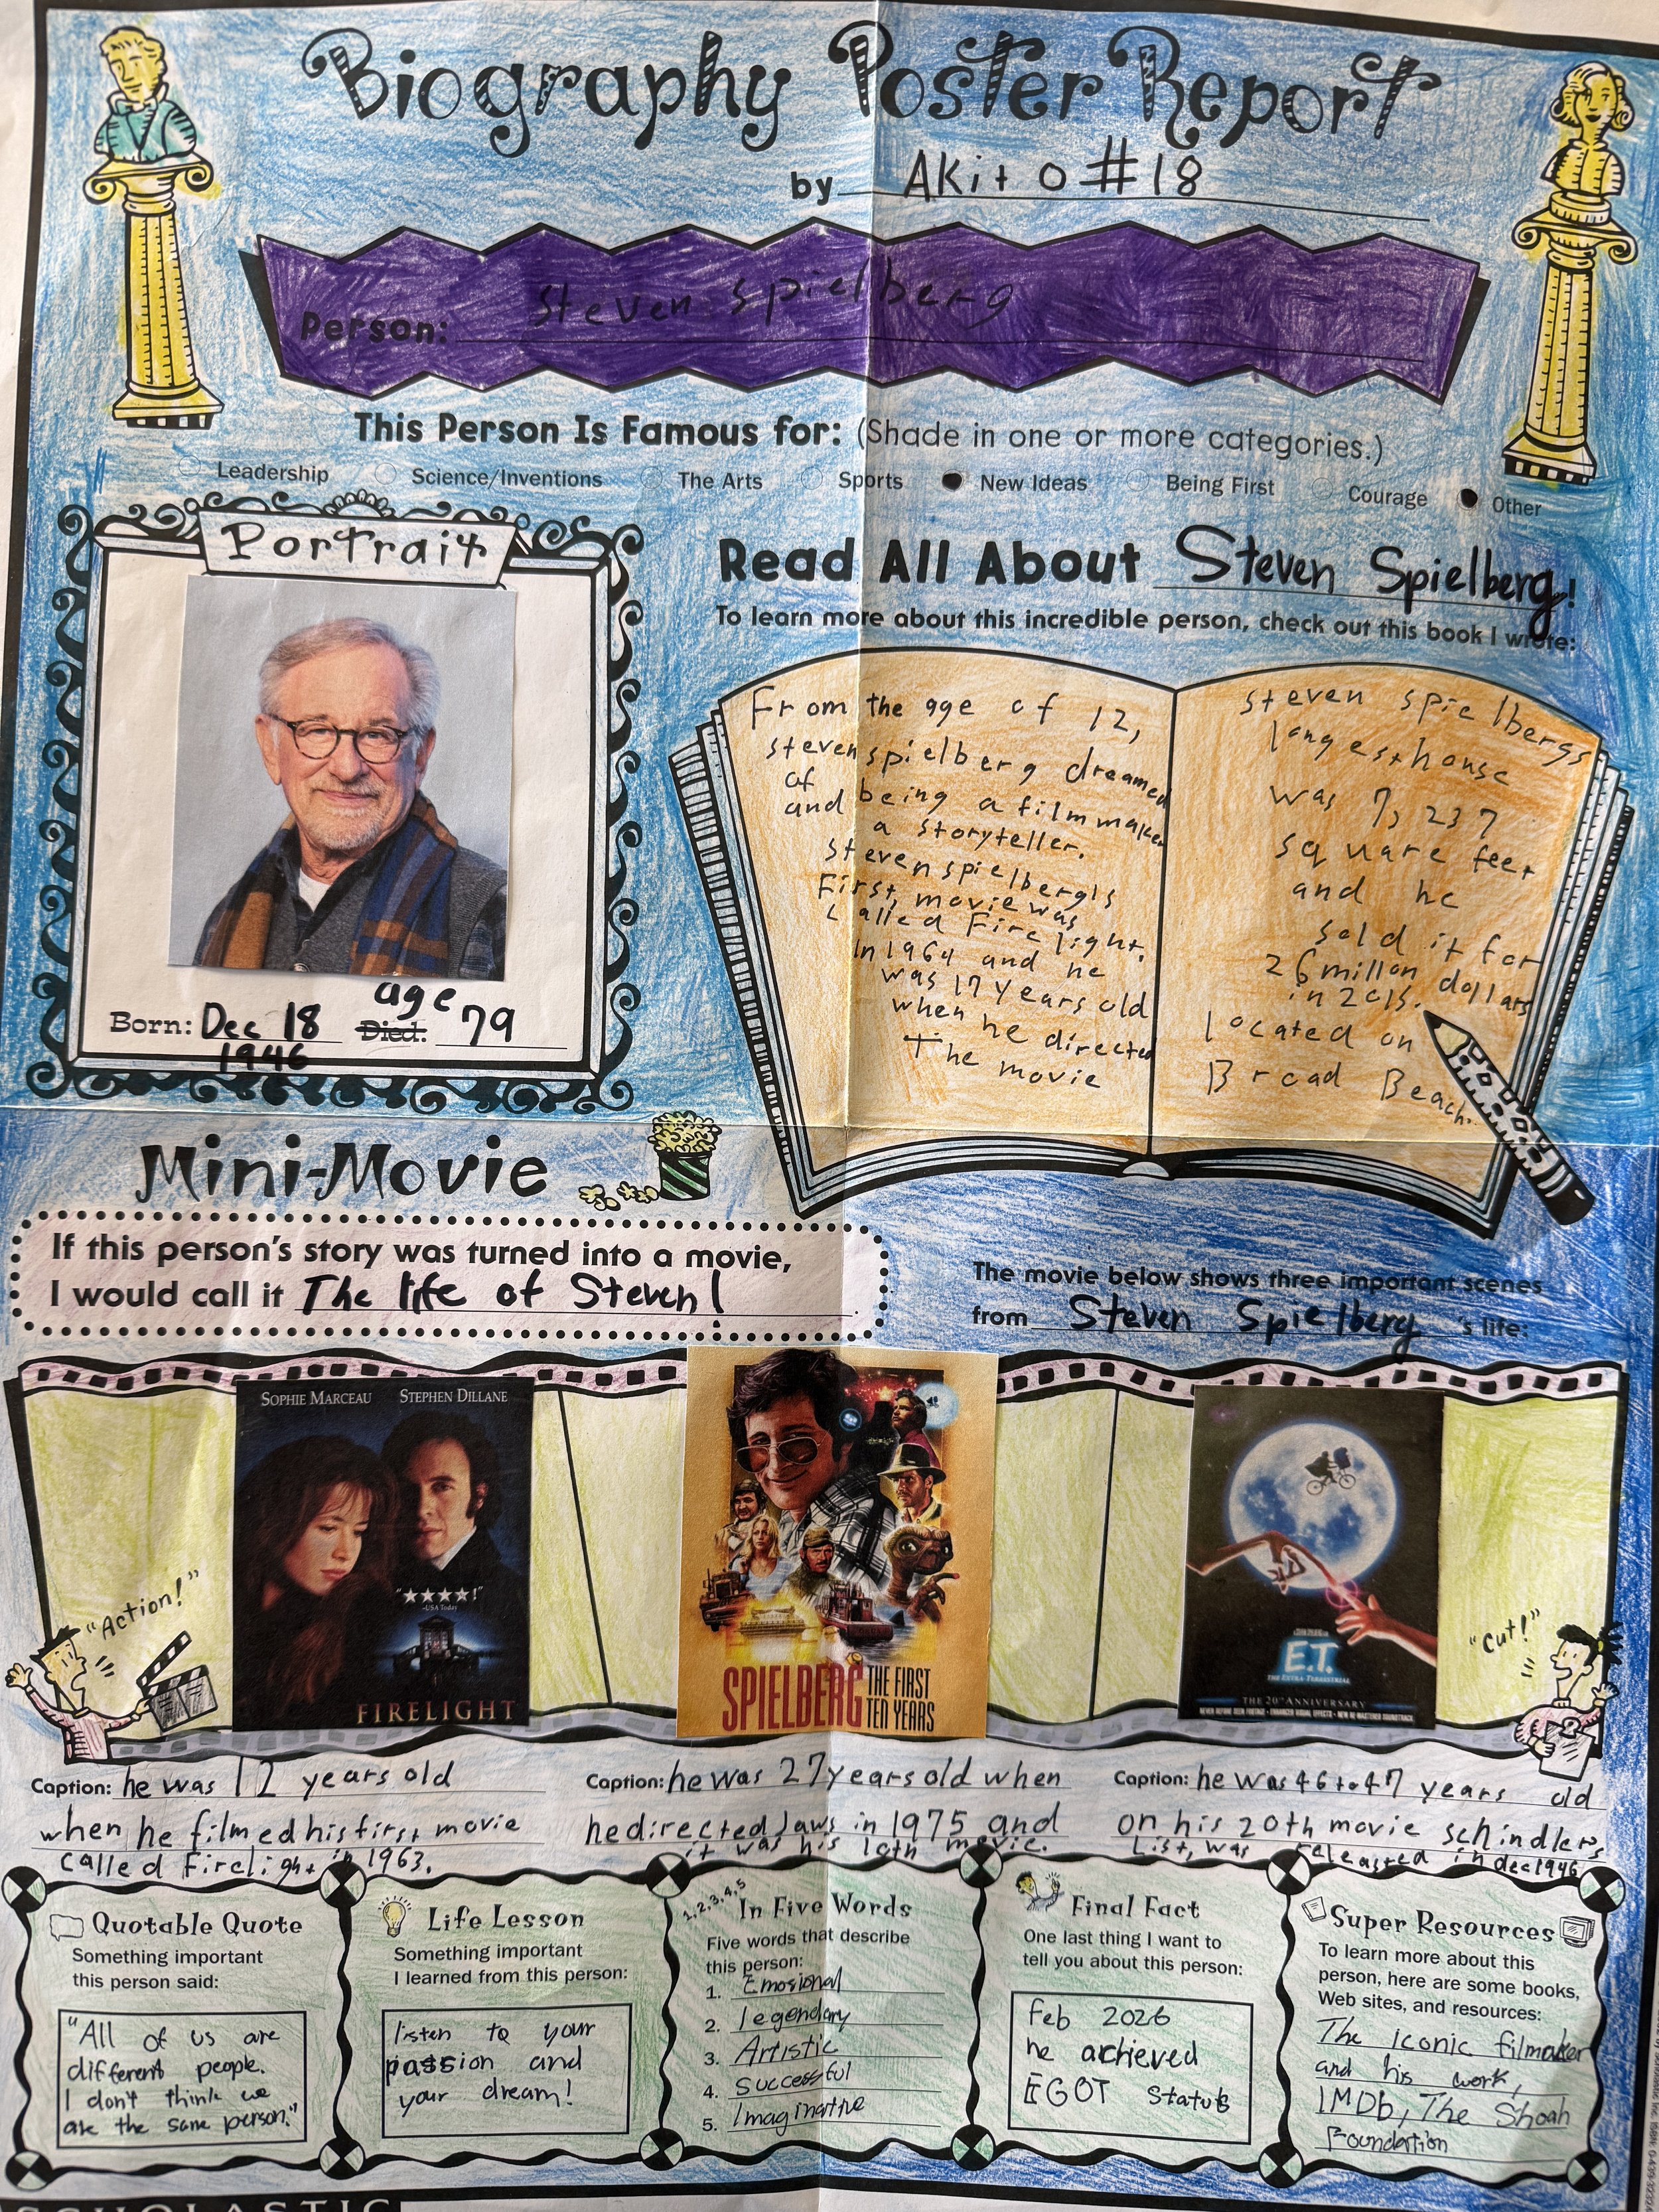 Biography Poster Report
by AKito #18
Person: Steven Spielberg
This Person Is Famous for: (Shade in one or more categories.)
Leadership Science/Inventions The Arts Sports New Ideas Being First Courage Other
Portrait
Born: Dec 18 1946 Died: age 79
Read All About Steven Spielberg!
To learn more about this incredible person, check out this book I wrote:
From the age of 12,
steven spielberg dreamed
of being a filmmaker
and a storyteller.
steven spielberg's
First, movie was
called Firelight.
in 1964 and he
was 17 years old
when he directed
The movie
steven spielbergs
longest house
was 7,237
square feet
and he
sold it for
26 millon dollars
in 2015.
located on
Broad Beach.
Mini-Movie
If this person's story was turned into a movie,
I would call it The life of Steven!
The movie below shows three important scenes
from Steven Spielberg 's life:
"Action!"
SOPHIE MARCEAU STEPHEN DILLANE
"★★★★!"
-USA Today
FIRELIGHT
SPIELBERG THE FIRST
TEN YEARS
E.T.
THE EXTRA-TERRESTRIAL
THE 20TH ANNIVERSARY
"Cut!"
Caption: he was 12 years old
when he filmed his first movie
called Firelight in 1963.
Caption: he was 27 years old when
he directed Jaws in 1975 and
it was his 10th movie.
Caption: he was 46 to 47 years old
on his 20th movie schindlers
List, was released in dec 1946
Quotable Quote
Something important
this person said:
"All of us are
different people.
I don't think we
are the same person."
Life Lesson
Something important
I learned from this person:
listen to your
passion and
your dream!
1,2,3,4,5
In Five Words
Five words that describe
this person:
1. Emosional
2. Legendary
3. Artistic
4. Successful
5. Imaginative
Final Fact
One last thing I want to
tell you about this person:
Feb 2026
he achieved
EGOT Status
Super Resources
To learn more about this
person, here are some books,
Web sites, and resources:
The iconic filmaker
and his work,
IMDb, The Shoah
Foundation
SCHOLASTIC